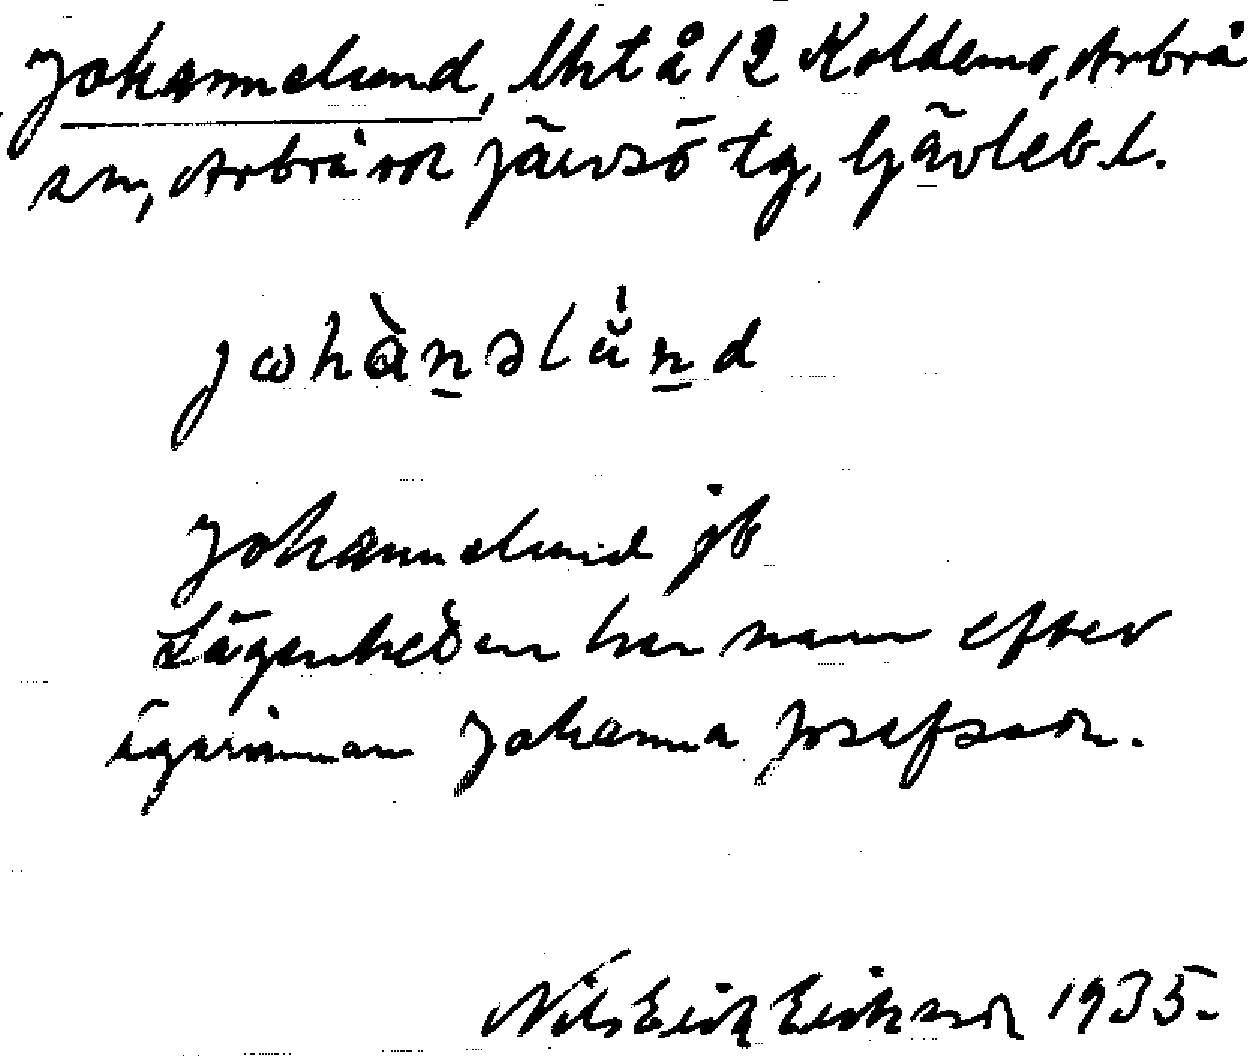 Johannelund, lht å 12 Koldemo, Arbrå
sn, Arbrå och Järvsö tg, Gävleb. l.
jωhànəlų̆nd
Johannelund jb
Lägenheten har namn efter
ägarinnan Johanna Josefsson.
Nils Erik Eriksson 1935.